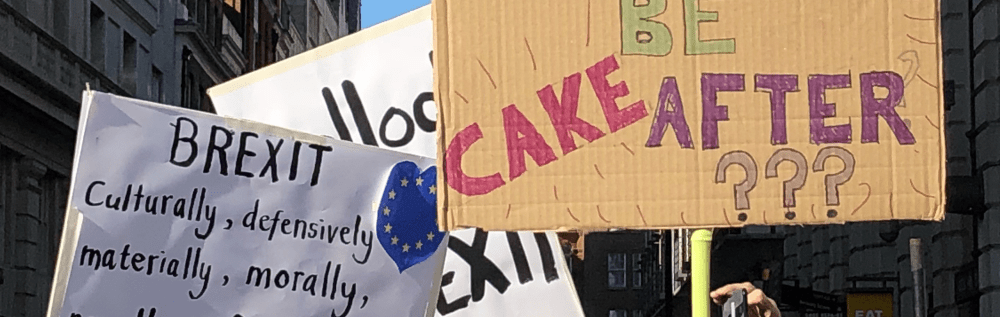 BREXIT
Culturally, defensively
materially, morally,
BE
CAKE AFTER
???
EXIT
EAT